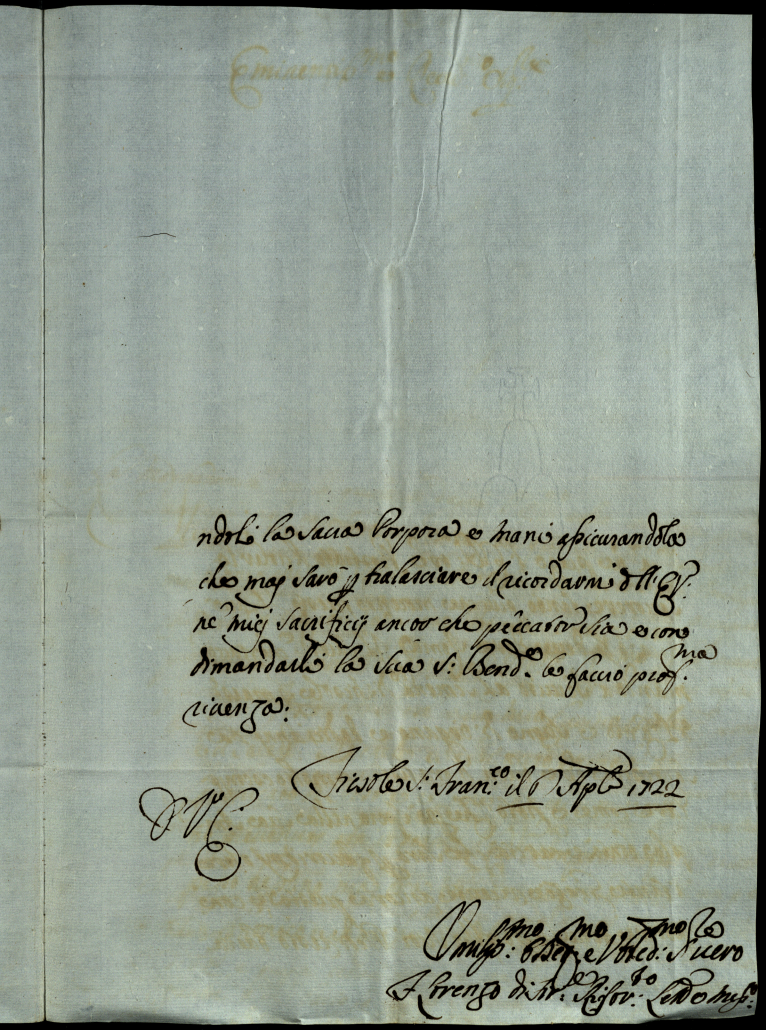 ndoli la Sacra Porpora e mani assicurandola
che maj sarò p tralasciare il ricordarmi dell' E.V.
ne' miej Sacrificij ancor che peccator sia e con
dimandarli la sua S: Bened.e le faccio prof.ma
riuenza:
Fiesole S: Fran.co il 6 Aple 1722
D V. E.
Umiliss:mo e Vbbed:mo Seruo
F Lorenzo di